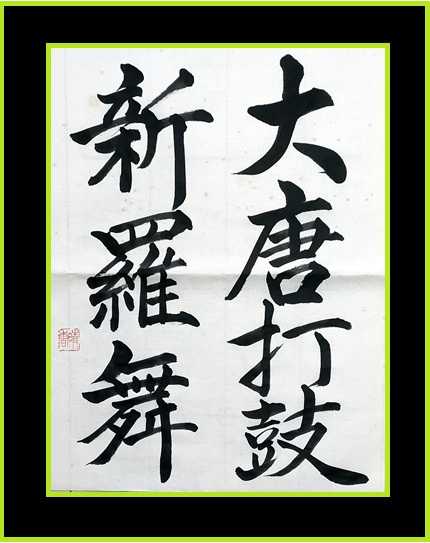 大唐打鼓
新羅舞